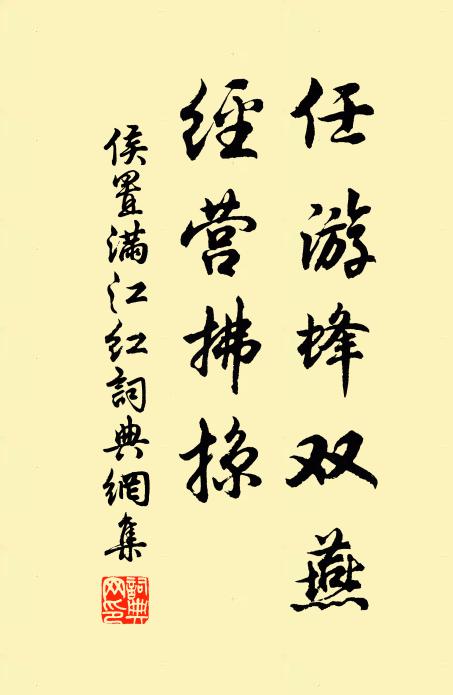 任游蜂双燕
经营拂掠
侯置满江红词典網集
詞典网印